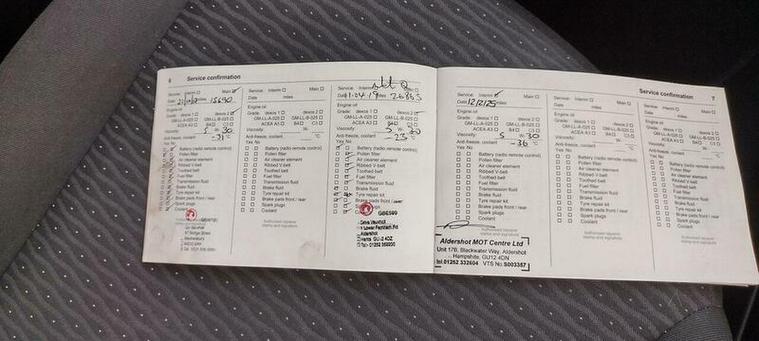 6 Service confirmation
Service: Interim Main
Date miles 15690
Engine oil
Grade: dexos 1 dexos 2
GM-LL-A-025 GM-LL-B-025
ACEA A3 B4 C3
Viscosity: 5 W- 30
Anti-freeze, coolant -31 °C
Yes No
Battery (radio remote control)
Pollen filter
Air cleaner element
Ribbed V-belt
Toothed belt
Fuel filter
Transmission fluid
Brake fluid
Tyre repair kit
Brake pads front / rear
Spark plugs
Coolant
Service: Interim Main
Date miles
Engine oil
Grade: dexos 1 dexos 2
GM-LL-A-025 GM-LL-B-025
ACEA A3 B4 C3
Viscosity: W-
Anti-freeze, coolant °C
Yes No
Battery (radio remote control)
Pollen filter
Air cleaner element
Ribbed V-belt
Toothed belt
Fuel filter
Transmission fluid
Brake fluid
Tyre repair kit
Brake pads front / rear
Spark plugs
Coolant
Authorised repairer
stamp and signature
Service: Interim Main
Date 11.04.19 miles
Engine oil
Grade: dexos 1 dexos 2
GM-LL-A-025 GM-LL-B-025
ACEA A3 B4 C3
Viscosity: 5 W- 30
Anti-freeze, coolant °C
Yes No
Battery (radio remote control)
Pollen filter
Air cleaner element
Ribbed V-belt
Toothed belt
Fuel filter
Transmission fluid
Brake fluid
Tyre repair kit
Brake pads front / rear
Aldershot
Service confirmation 7
Service: Interim Main
Date 12/2/25 miles
Engine oil
Grade: dexos 1 dexos 2
GM-LL-A-025 GM-LL-B-025
ACEA A3 B4 C3
Viscosity: 5 W- 30
Anti-freeze, coolant -36 °C
Yes No
Battery (radio remote control)
Pollen filter
Air cleaner element
Ribbed V-belt
Toothed belt
Fuel filter
Transmission fluid
Brake fluid
Tyre repair kit
Brake pads front / rear
Spark plugs
Coolant
Authorised repairer
stamp and signature
Aldershot MOT Centre Ltd
Unit 17B, Blackwater Way, Aldershot
Hampshire, GU12 4DN
tel.01252 332604 VTS No.S003357
Service: Interim Main
Date miles
Engine oil
Grade: dexos 1 dexos 2
GM-LL-A-025 GM-LL-B-025
ACEA A3 B4 C3
Viscosity: W-
Anti-freeze, coolant °C
Yes No
Battery (radio remote control)
Pollen filter
Air cleaner element
Ribbed V-belt
Toothed belt
Fuel filter
Transmission fluid
Brake fluid
Tyre repair kit
Brake pads front / rear
Spark plugs
Coolant
Authorised repairer
stamp and signature
Service: Interim Main
Date miles
Engine oil
Grade: dexos 1 dexos 2
GM-LL-A-025 GM-LL-B-025
ACEA A3 B4 C3
Viscosity: W-
Anti-freeze, coolant °C
Yes No
Battery (radio remote control)
Pollen filter
Air cleaner element
Ribbed V-belt
Toothed belt
Fuel filter
Transmission fluid
Brake fluid
Tyre repair kit
Brake pads front / rear
Spark plugs
Coolant
Authorised repairer
stamp and signature